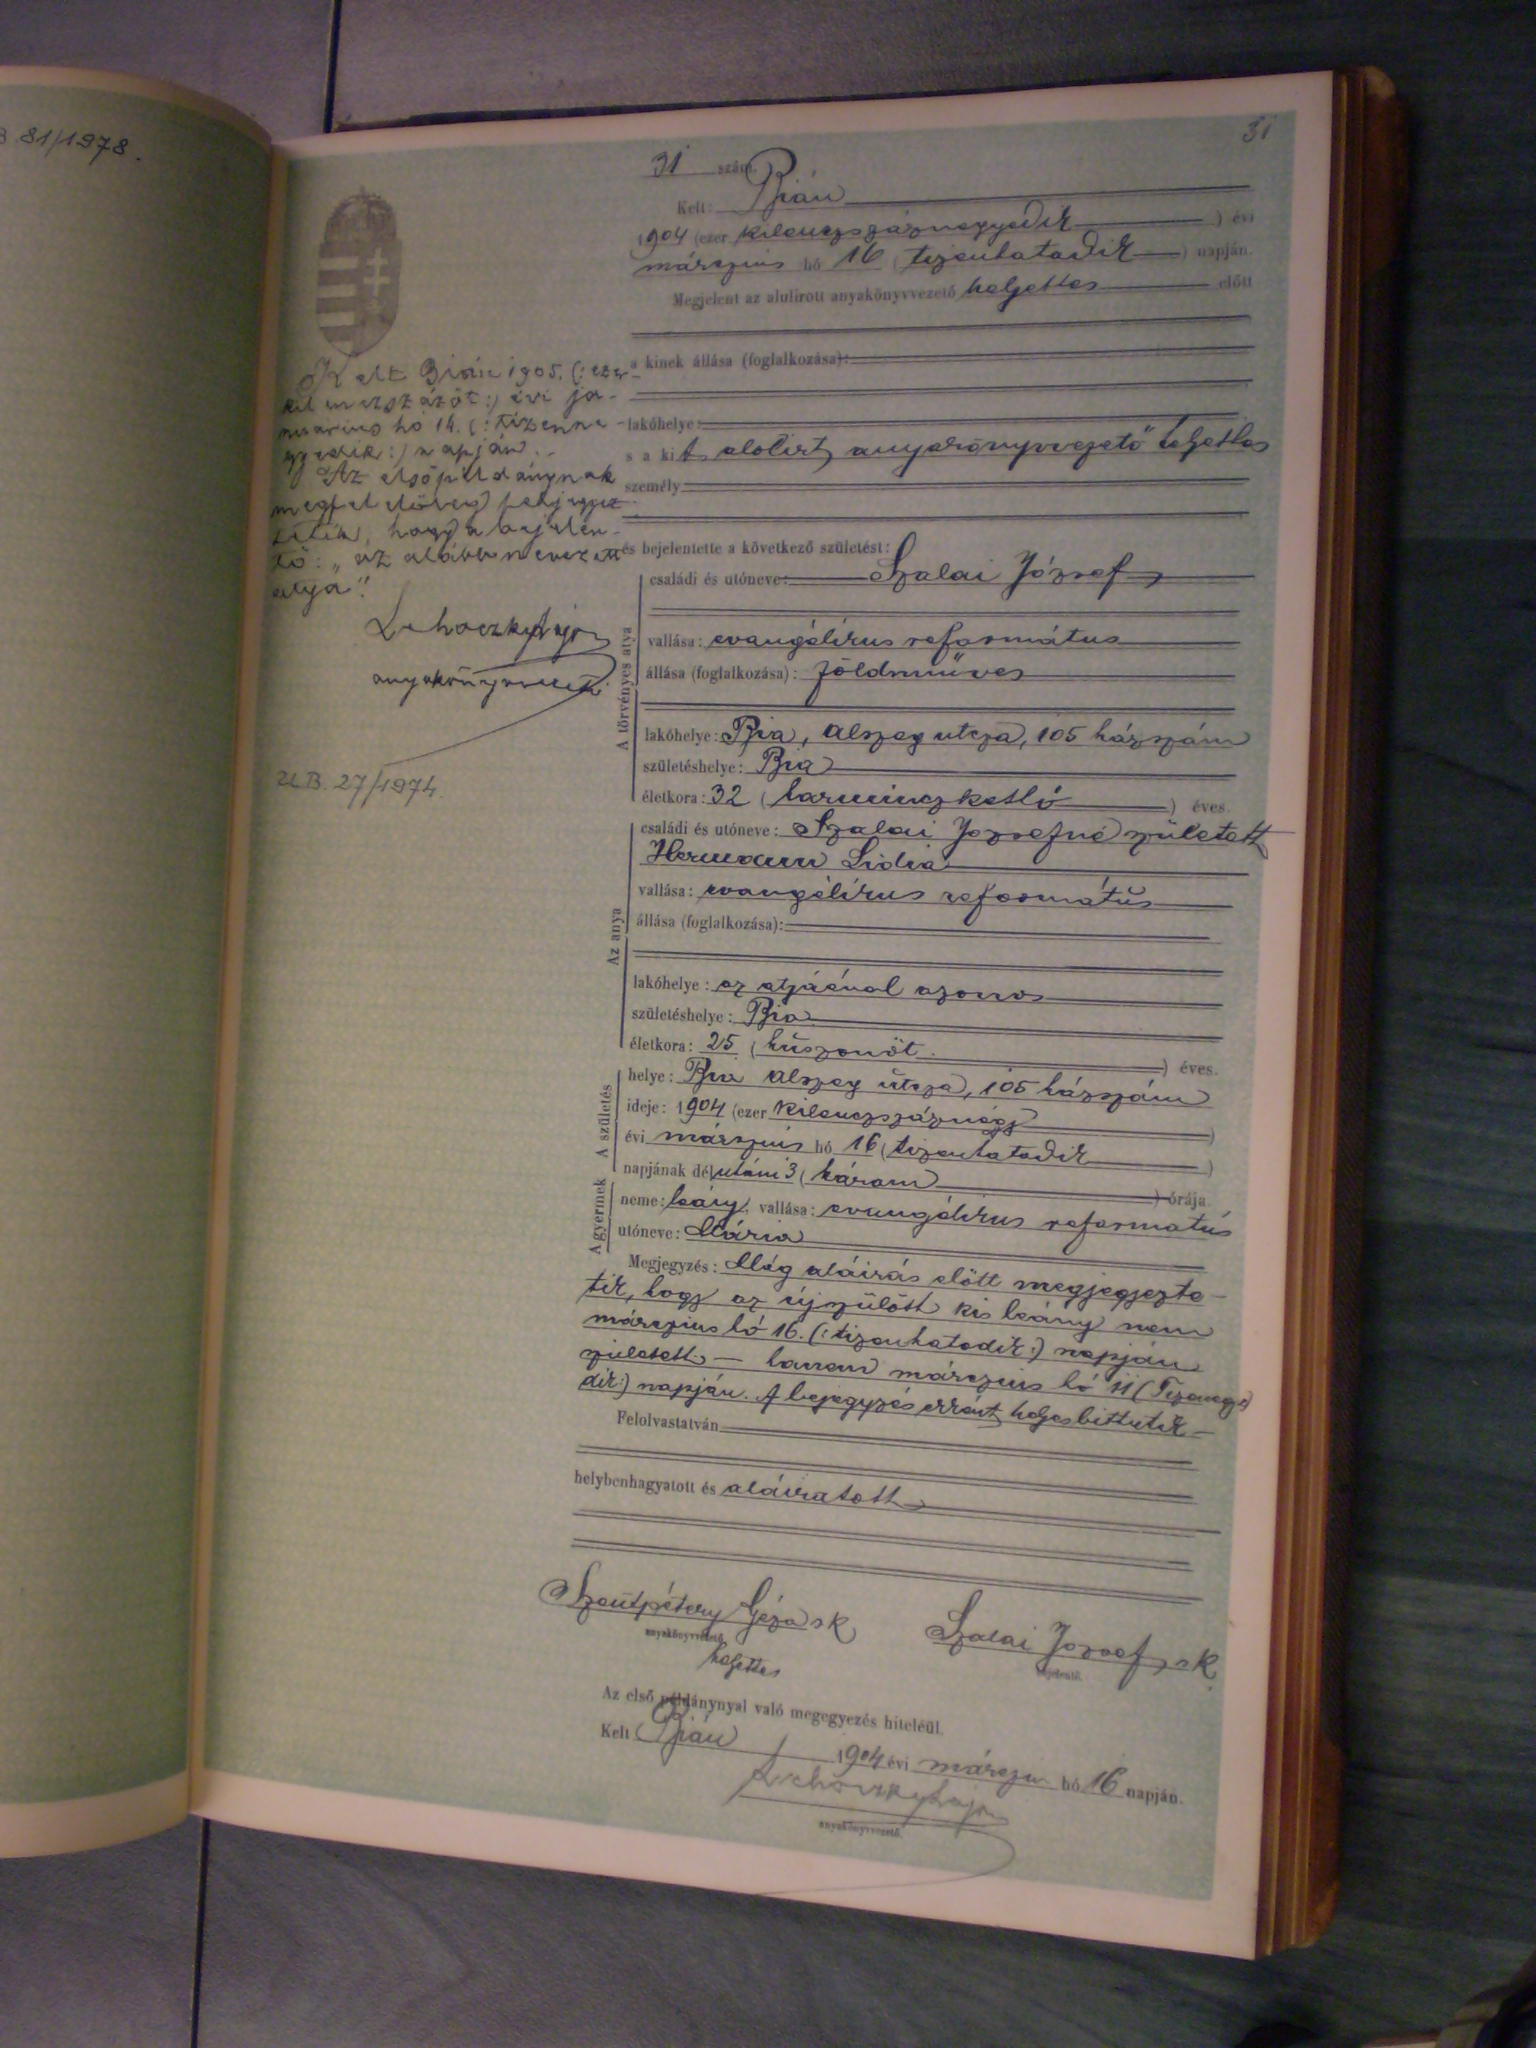 B. 81/1978.
31
31 szám.
Kelt: Bián
1904 (ezer kilenczszáznegyedik) évi
márczius hó 16 (tizenhatodik) napján.
Megjelent az alulirott anyakönyvvezető helyettes előtt
a kinek állása (foglalkozása):
lakóhelye:
s a kit alólirt anyakönyvvezető helyettes
személy
és bejelentette a következő születést:
Kelt Bián 1905. (: ezer
kilenczszázöt :) évi ja-
nuárius hó 14. (: tizenne-
gyedik :) napján.
Az elsőpéldánynak
megfelelőleg feljegyez-
tetik, hogy a bejelen-
tő: „az alább nevezett
atya".
Lehoczky Lajos
anyakönyvvezető
U.B. 27/1974.
A törvényes atya
családi és utóneve: Szalai József
vallása: evangélikus református
állása (foglalkozása): földműves
lakóhelye: Bia, Alszeg utcza, 105 házszám
születéshelye: Bia
életkora: 32 (harminczkettő) éves.
Az anya
családi és utóneve: Szalai Józsefné született
Hermann Lidia
vallása: evangélikus református
állása (foglalkozása):
lakóhelye: az atyáénal azonos
születéshelye: Bia
életkora: 25 (huszonöt.) éves.
A születés
helye: Bia Alszeg utcza, 105 házszám
ideje: 1904 (ezer kilenczszáznégy)
évi márczius hó 16 (tizenhatodik)
napjának délutáni 3 (három) órája.
A gyermek
neme: leány, vallása: evangélikus református
utóneve: Mária
Megjegyzés: Még aláirás előtt megjegyezte-
tik, hogy az újszülött kis leány nem
márczius hó 16. (: tizenhatodik :) napján
született – hanem márczius hó 11 (Tizenegye
dik :) napján. A bejegyzés eként helyesbittetik –
Felolvastatván
helybenhagyatott és aláiratott
Szentpétery Géza sk
anyakönyvvezető
helyettes
Szalai József sk.
bejelentő.
Az első példánynyal való megegyezés hiteléül.
Kelt Bián 1904 évi márczius hó 16 napján.
Lehoczky Lajos
anyakönyvvezető.